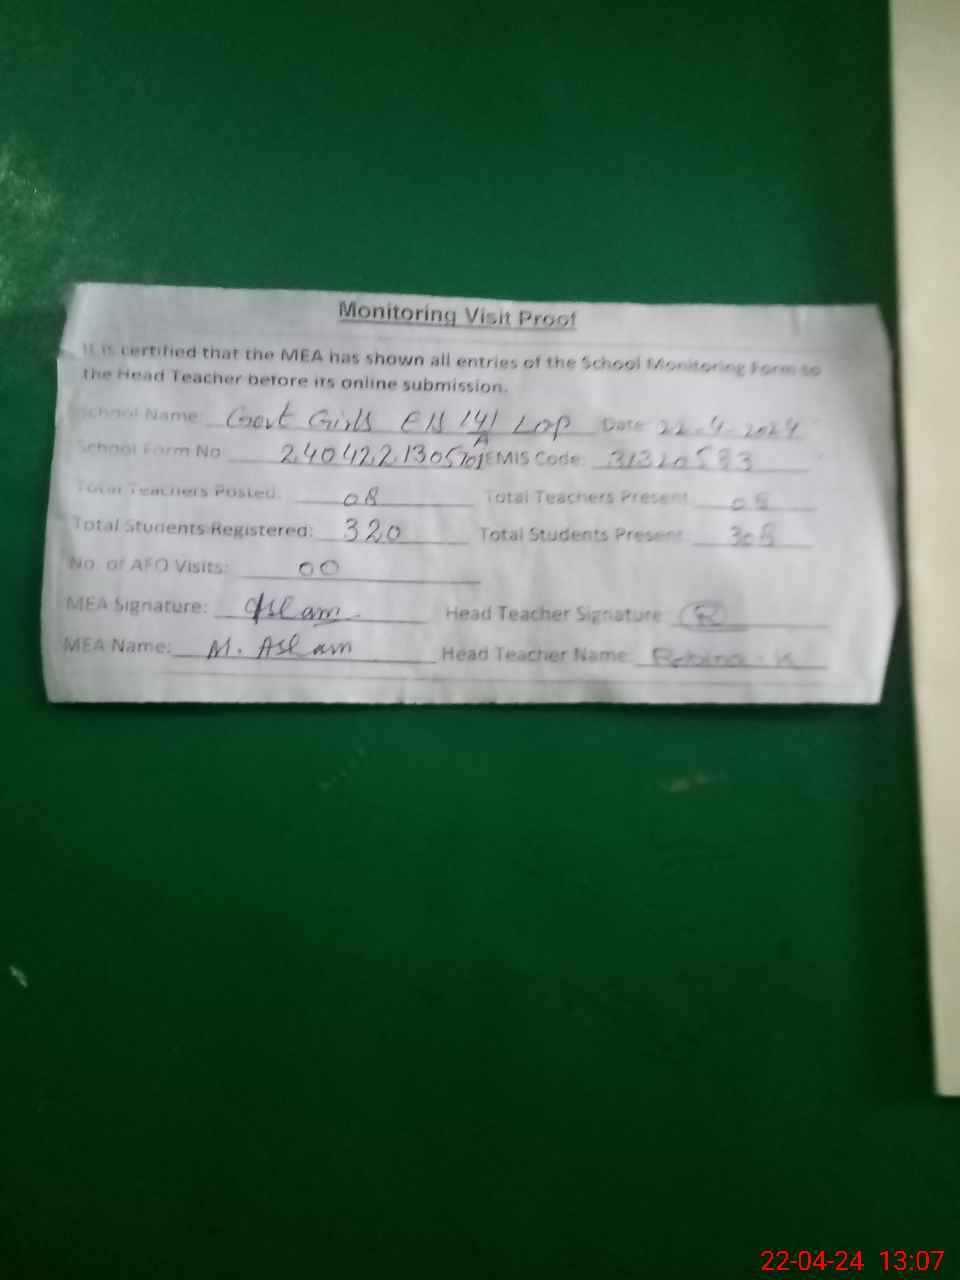 Monitoring Visit Proof
It is certified that the MEA has shown all entries of the School Monitoring Form to
the Head Teacher before its online submission.
School Name: Govt Girls E/S 141/A Lop Date: 22-4-2024
School Form No 2404221305701 EMIS Code: 31320533
Total Teachers Posted: 08 Total Teachers Present: 08
Total Students Registered: 320 Total Students Present: 308
No. of AEO Visits: 00
MEA Signature: Aslam Head Teacher Signature: R
MEA Name: M. Aslam Head Teacher Name:
22-04-24 13:07